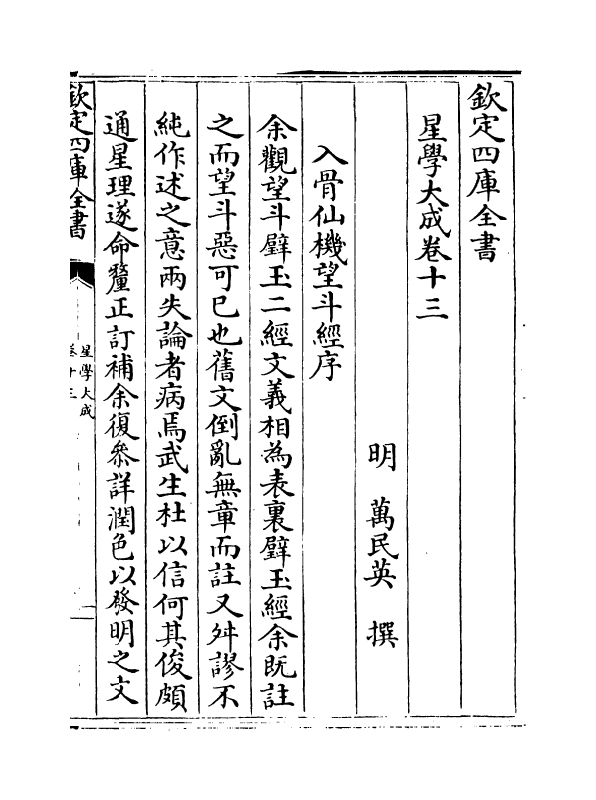 欽定四庫全書
星學大成卷十三
明　萬民英　撰
入骨仙機望斗經序
余觀望斗璧玉二經文義相為表裏璧玉經余既註
之而望斗惡可已也舊文倒亂無章而註又舛謬不
純作述之意兩失論者病焉武生杜以信何其俊頗
通星理遂命釐正訂補余復叅詳潤色以發明之文
欽定四庫全書
星學大成
卷十三